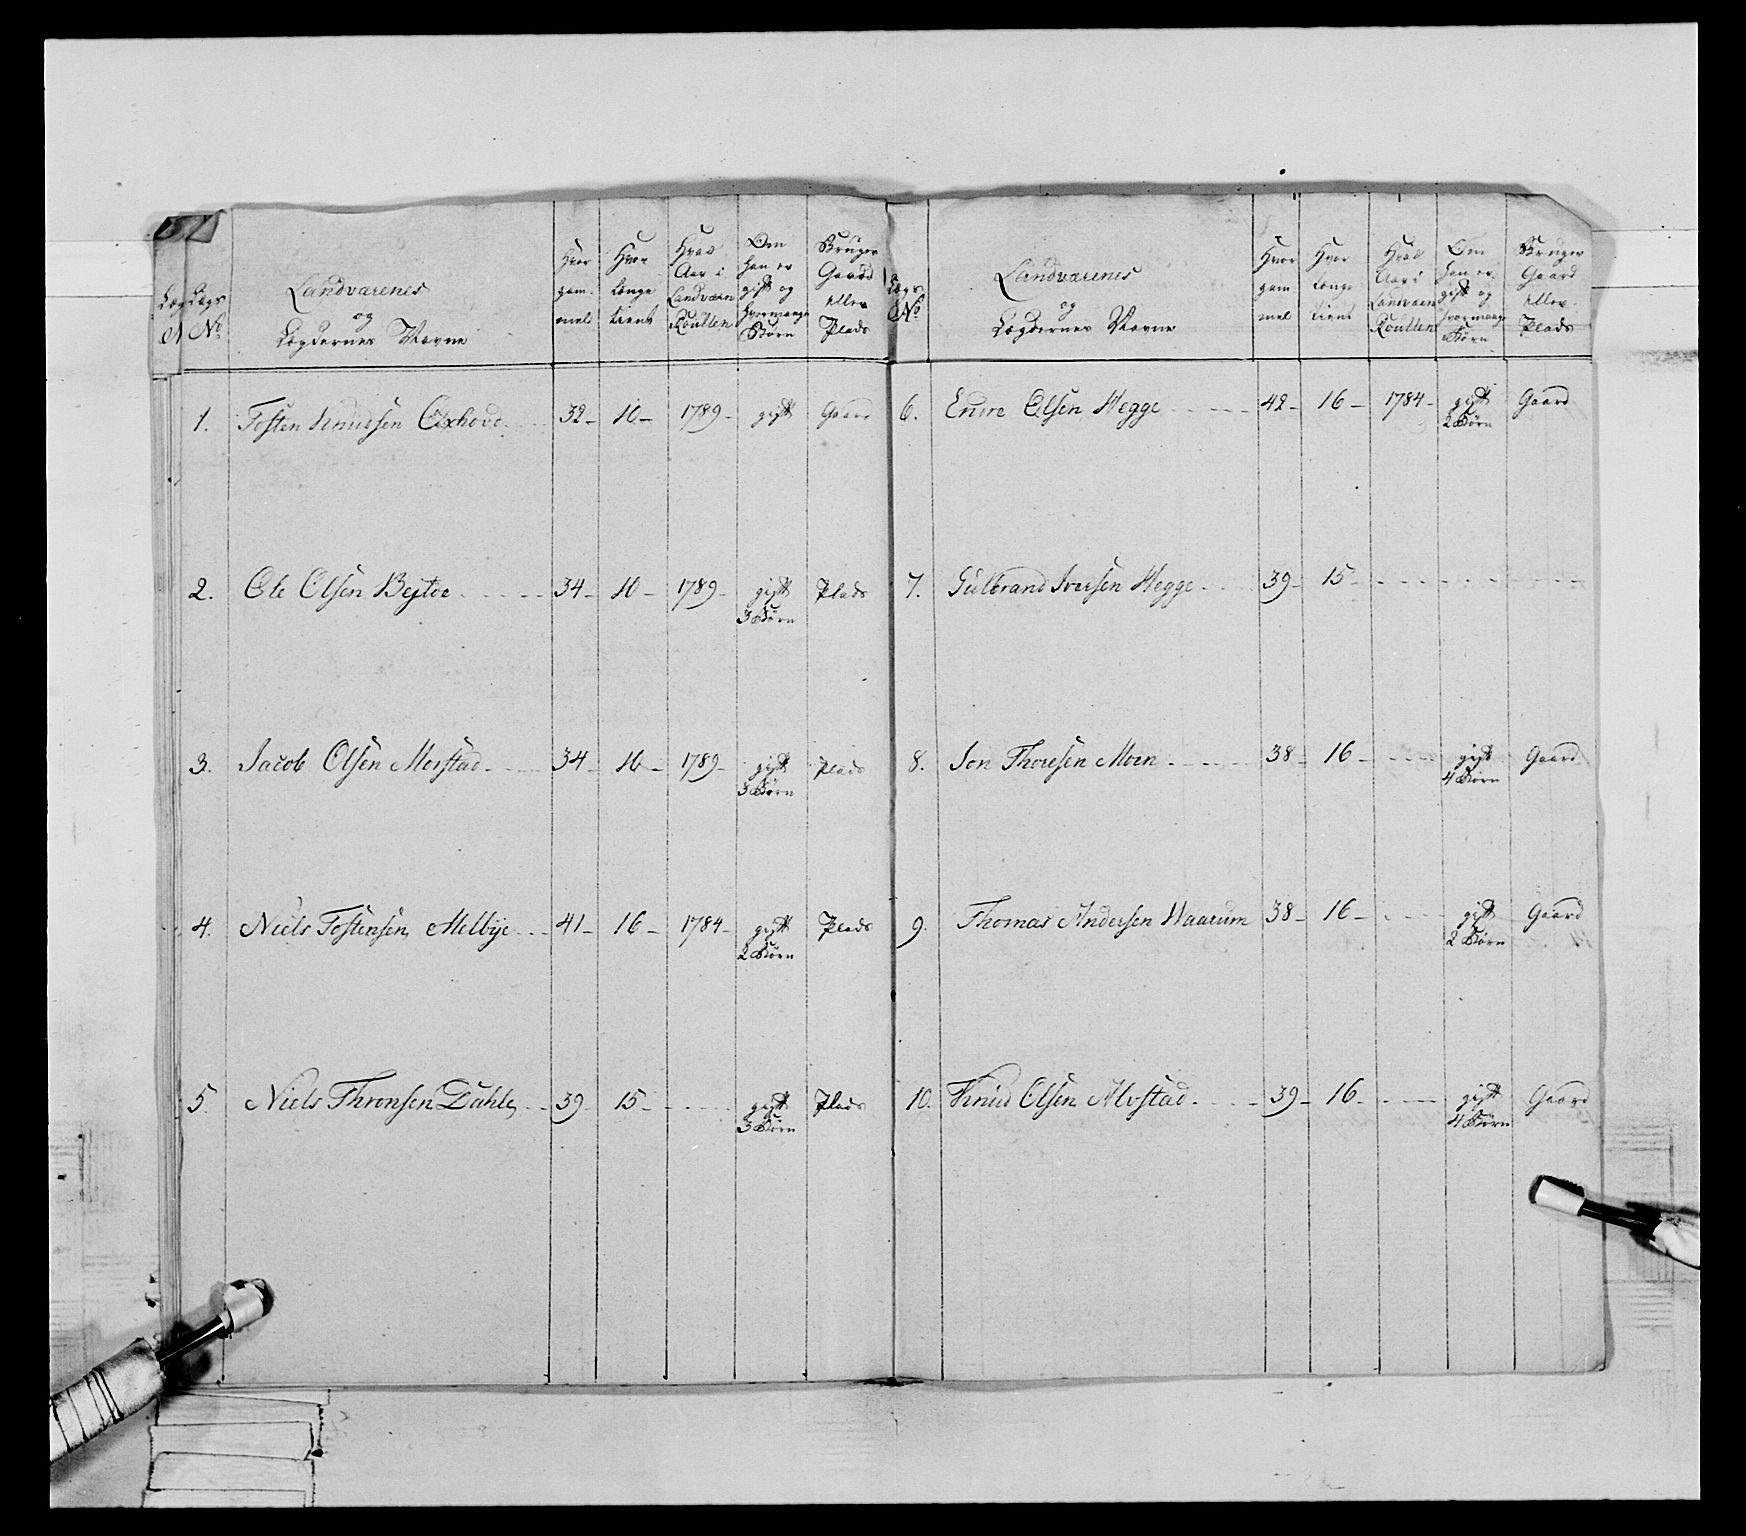 Lægs No
Landværenes og Lægdernes Navne
Hvor gam- mel
Hvor Længe tient
Hvad Aar i Landværn Roullen
Om han er gift og hvormange Børn
Bruger Gaard eller Plads
1. Tosten Knudsen Oxhovd 32 10 1789 gift Gaard
2. Ole Olsen Bejtoe 34 10 1789 gift 3 Børn Plads
3. Jacob Olsen Morstad 34 10 1789 gift 3 Børn Plads
4. Niels Tostensen Melbye 41 16 1784 gift 2 Børn Plads
5. Niels Thronsen Dahle 39 15 gift 3 Børn Plads
Lægs No
Landværenes og Lægdernes Navne
Hvor gam mel
Hvor Længe tient
Hvad Aar i Landværn Roullen
Om han er gift og hvormange Børn
Bruger Gaard eller Plads
6. Endre Olsen Hegge 42 16 1784 gift 2 Børn Gaard
7. Gulbrand Iversen Hegge 39 15
8. Jon Thoresen Moen 38 16 gift 4 Børn Gaard
9. Thomas Andersen Waarum 38 16 gift 2 Børn Gaard
10. Knud Olsen Alvstad 39 16 gift 4 Børn Gaard